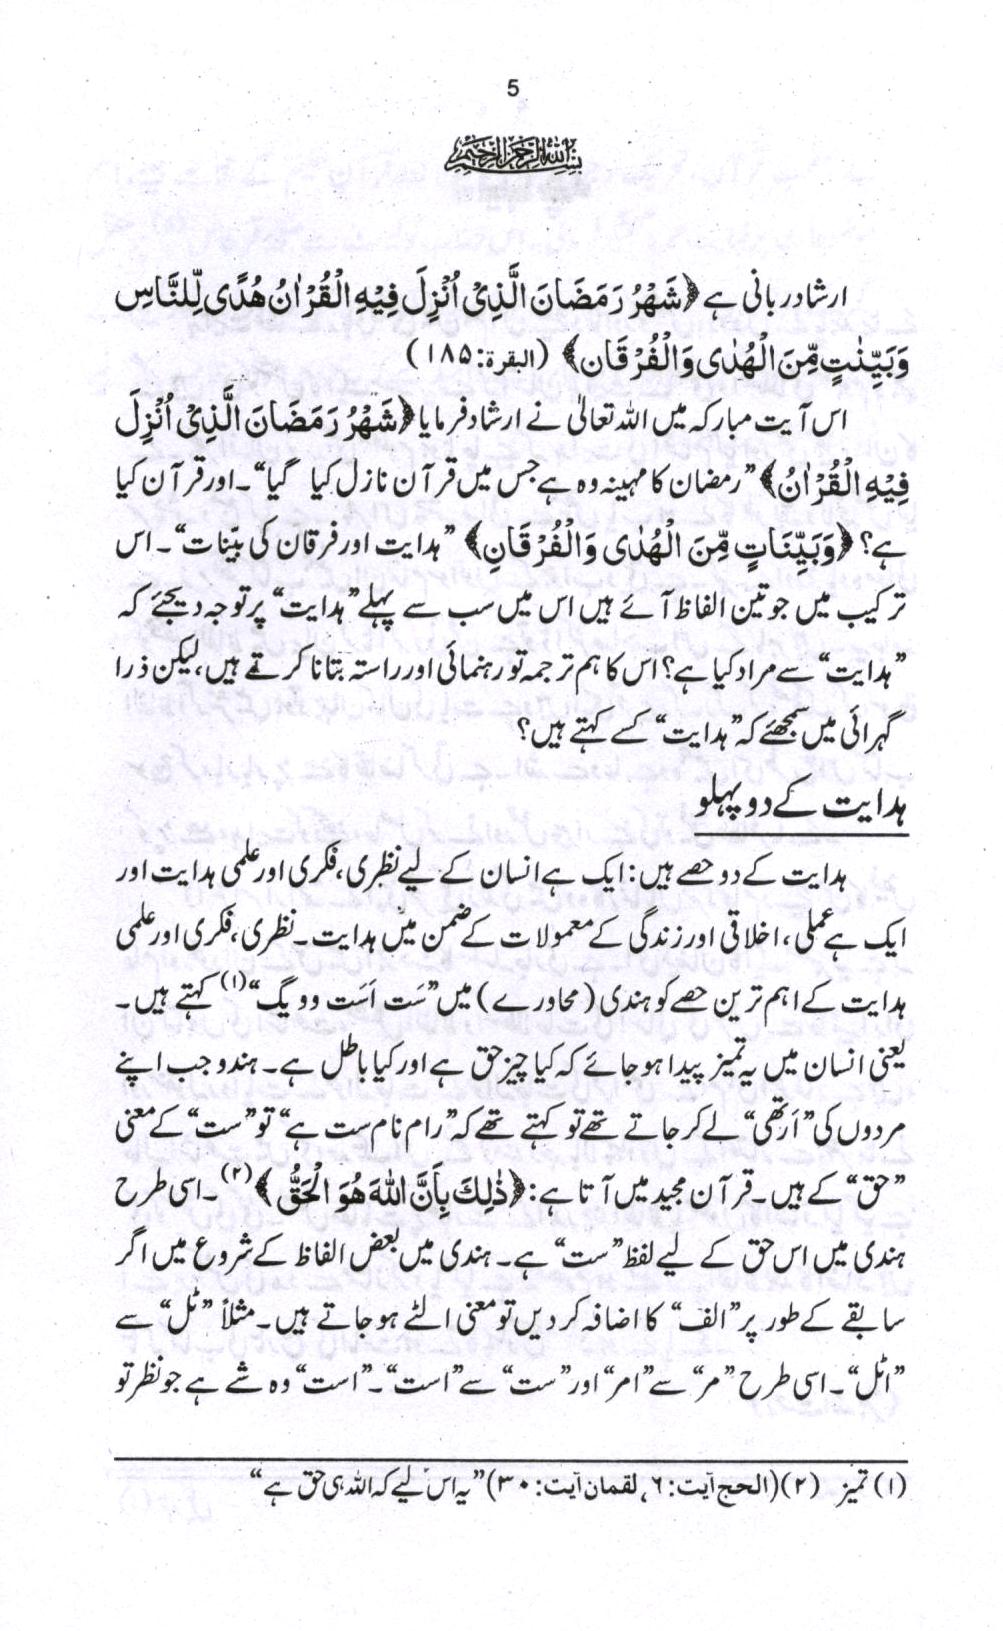 5
بسم الله الرحمن الرحيم
ارشاد ربانی ہے ﴿شَهْرُ رَمَضَانَ الَّذِىْ اُنْزِلَ فِيْهِ الْقُرْاٰنُ هُدًى لِّلنَّاسِ
وَبَيِّنٰتٍ مِّنَ الْهُدٰى وَالْفُرْقَان﴾ (البقرۃ:۱۸۵)
اس آیت مبارکہ میں اللہ تعالیٰ نے ارشاد فرمایا ﴿شَهْرُ رَمَضَانَ الَّذِىْ اُنْزِلَ
فِيْهِ الْقُرْاٰنُ﴾ ”رمضان کا مہینہ وہ ہے جس میں قرآن نازل کیا گیا“۔ اور قرآن کیا
ہے؟ ﴿وَبَيِّنَاتٍ مِّنَ الْهُدٰى وَالْفُرْقَانِ﴾ ”ہدایت اور فرقان کی بیّنات“۔ اس
ترکیب میں جو تین الفاظ آئے ہیں اس میں سب سے پہلے ”ہدایت“ پر توجہ دیجئے کہ
”ہدایت“ سے مراد کیا ہے؟ اس کا ہم ترجمہ تو رہنمائی اور راستہ بتانا کرتے ہیں، لیکن ذرا
گہرائی میں سمجھئے کہ ”ہدایت“ کسے کہتے ہیں؟
ہدایت کے دو پہلو
ہدایت کے دو حصے ہیں: ایک ہے انسان کے لیے نظری، فکری اور علمی ہدایت اور
ایک ہے عملی، اخلاقی اور زندگی کے معمولات کے ضمن میں ہدایت۔ نظری، فکری اور علمی
ہدایت کے اہم ترین حصے کو ہندی (محاورے) میں ”سَت اَسَت وویگ“(۱) کہتے ہیں۔
یعنی انسان میں یہ تمیز پیدا ہو جائے کہ کیا چیز حق ہے اور کیا باطل ہے۔ ہندو جب اپنے
مردوں کی ”اَرتھی“ لے کر جاتے تھے تو کہتے تھے کہ ”رام نام ست ہے“ تو ”ست“ کے معنی
”حق“ کے ہیں۔ قرآن مجید میں آتا ہے: ﴿ذٰلِكَ بِاَنَّ اللّٰهَ هُوَ الْحَقُّ﴾(۲)۔ اسی طرح
ہندی میں اس حق کے لیے لفظ ”ست“ ہے۔ ہندی میں بعض الفاظ کے شروع میں اگر
سابقے کے طور پر ”الف“ کا اضافہ کر دیں تو معنی الٹے ہو جاتے ہیں۔ مثلاً ”ٹل“ سے
”اٹل“۔ اسی طرح ”مر“ سے ”امر“ اور ”ست“ سے ”است“۔ ”است“ وہ شے ہے جو نظر تو
(۱) تمیز (۲) (الحج آیت: ۶، لقمان آیت: ۳۰) ”یہ اس لیے کہ اللہ ہی حق ہے“